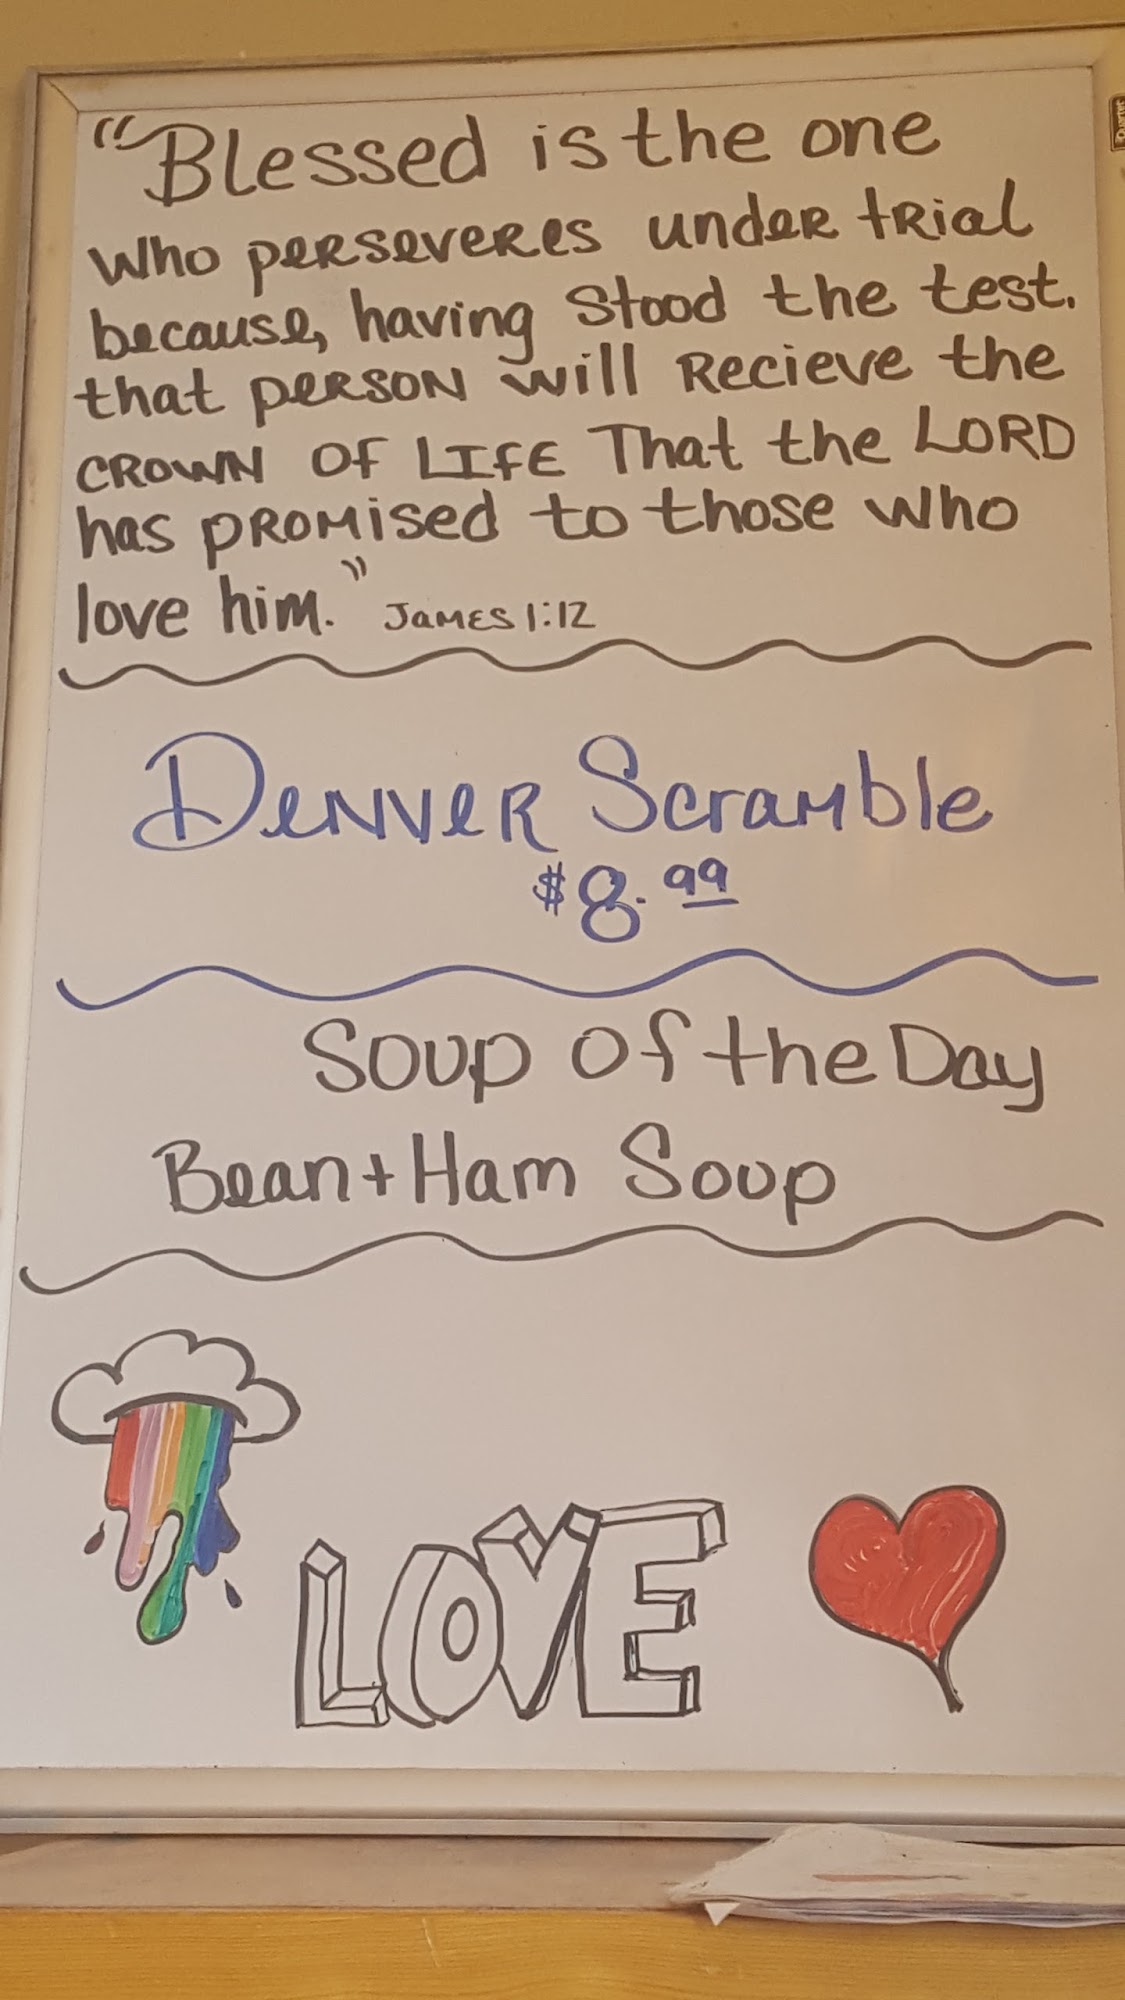 "Blessed is the one
who perseveres under trial
because, having stood the test.
that person will recieve the
crown of LIFE That the LORD
has promised to those who
love him." James 1:12
Denver Scramble
$8.99
Soup of the Day
Bean + Ham Soup
LOVE